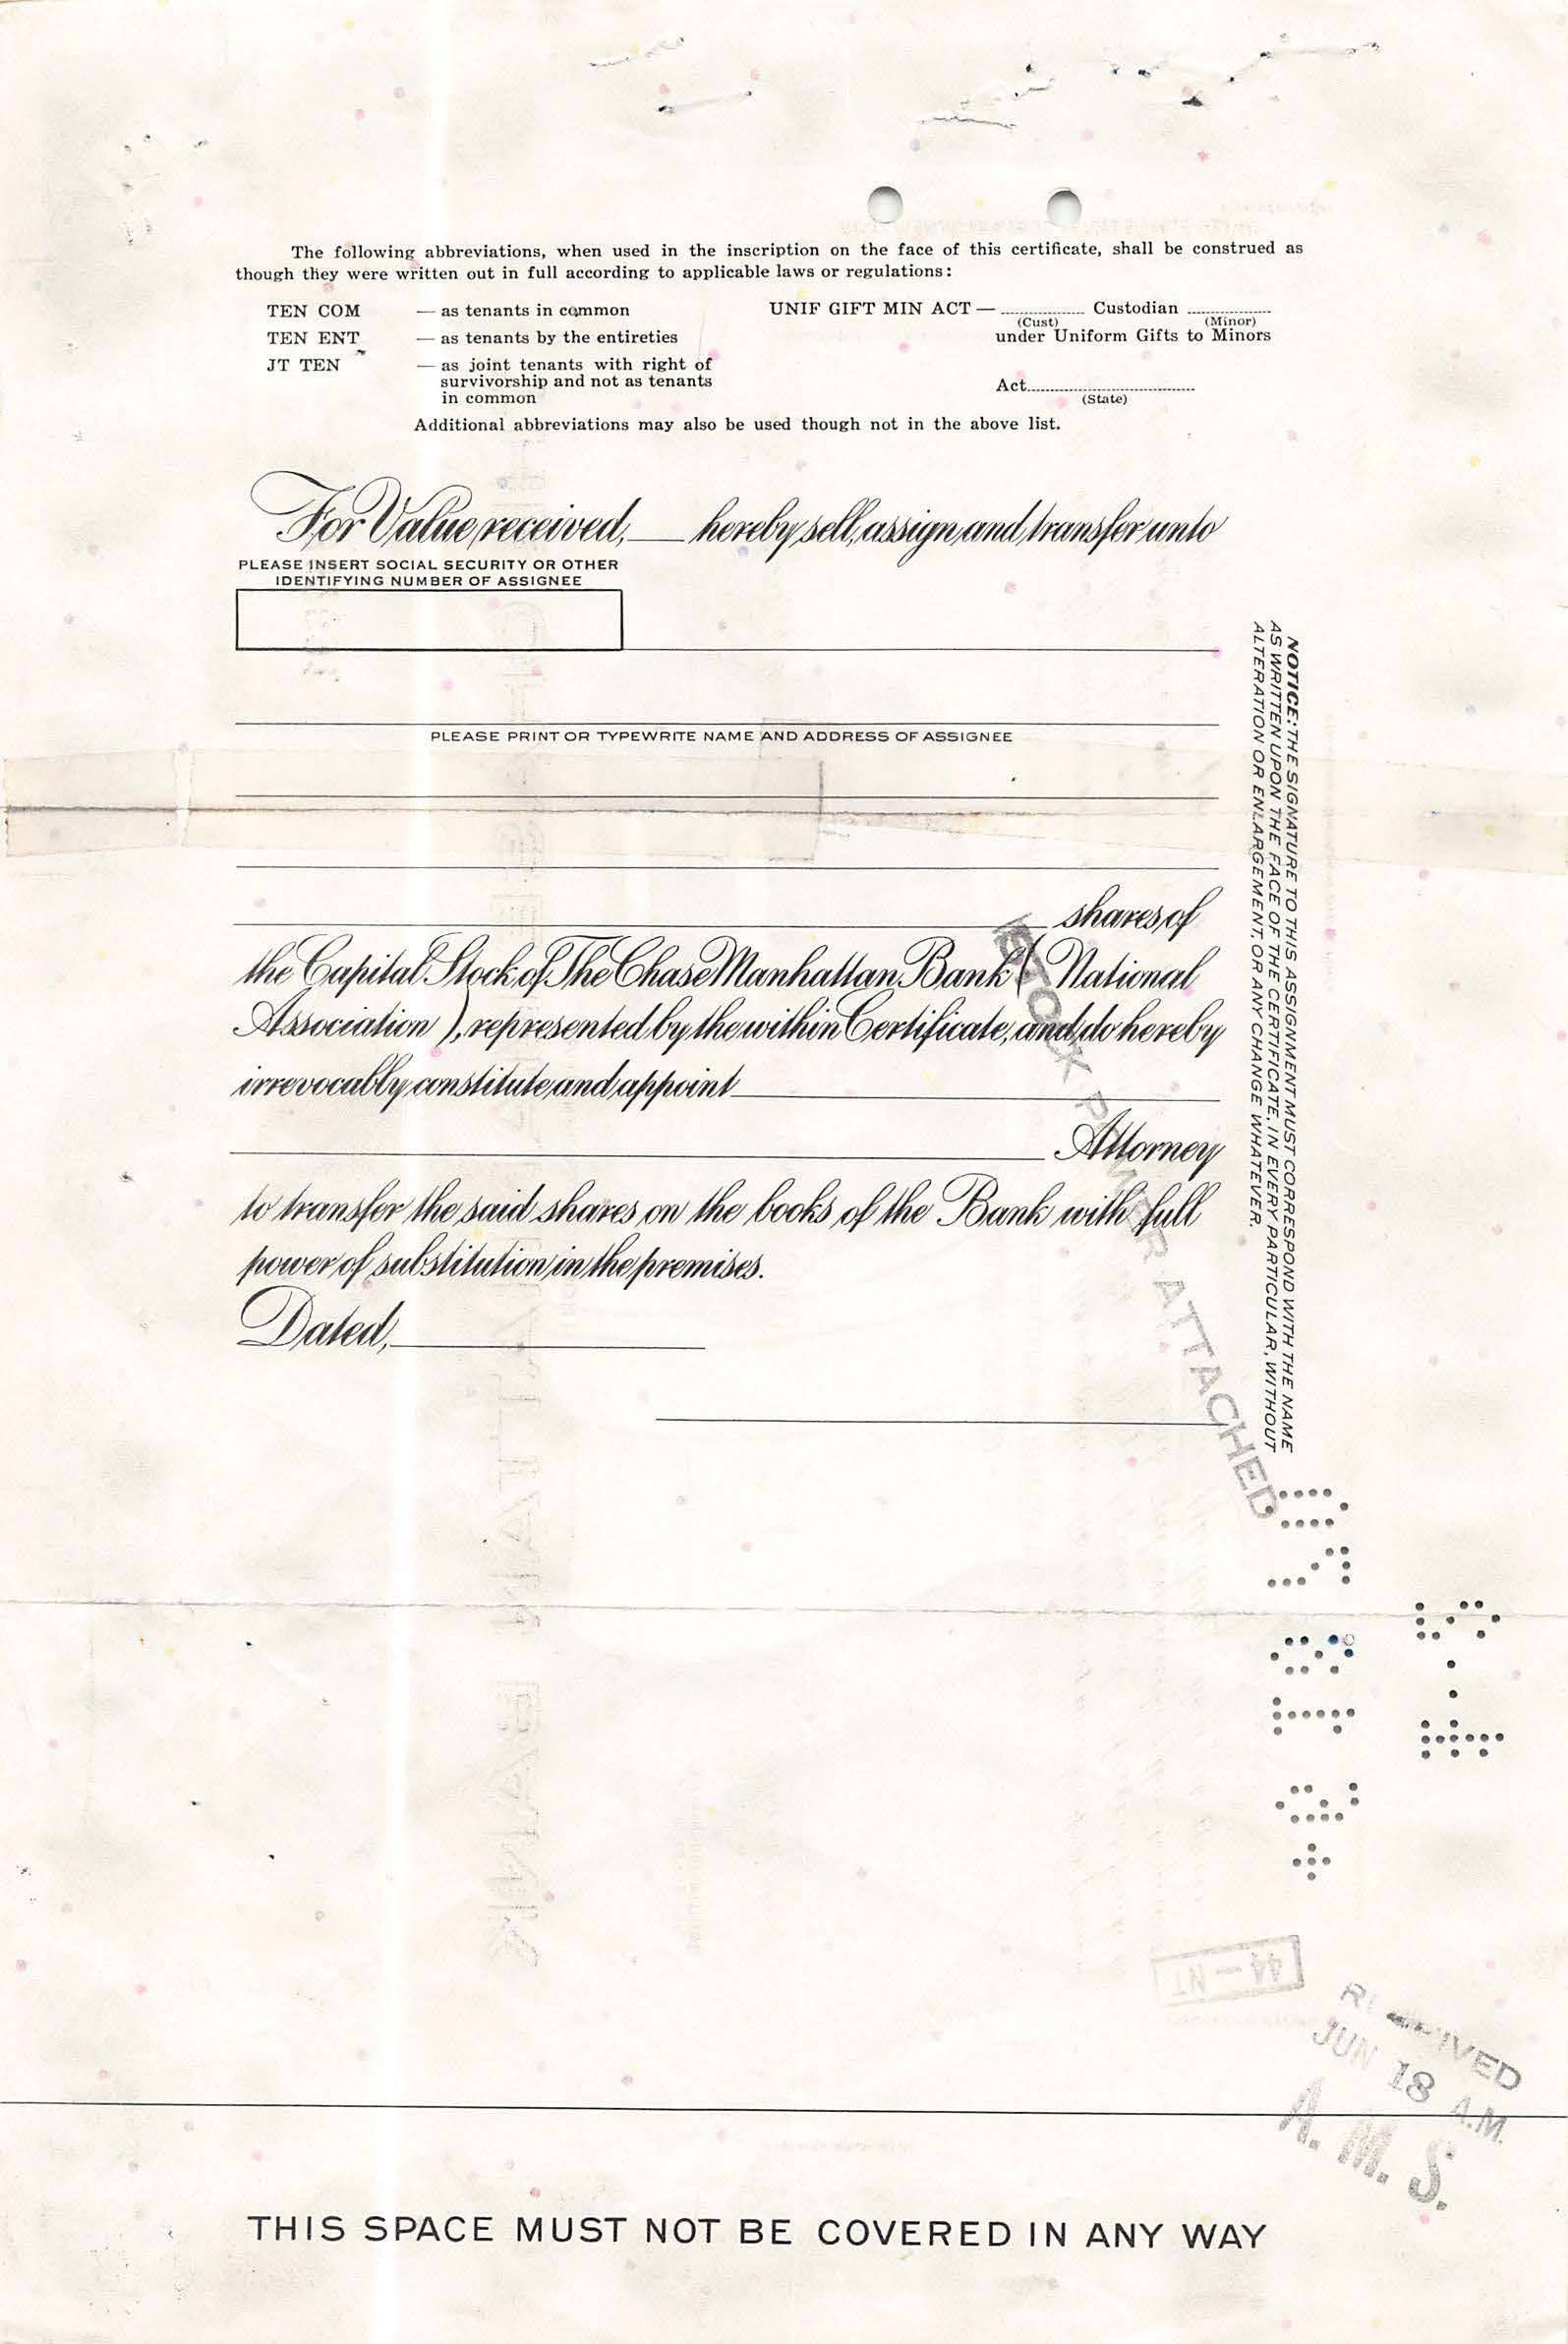 The following abbreviations, when used in the inscription on the face of this certificate, shall be construed as
though they were written out in full according to applicable laws or regulations:
TEN COM — as tenants in common
TEN ENT — as tenants by the entireties
JT TEN — as joint tenants with right of
survivorship and not as tenants
in common
UNIF GIFT MIN ACT — Custodian
(Cust) (Minor)
under Uniform Gifts to Minors
Act
(State)
Additional abbreviations may also be used though not in the above list.
For Value received, hereby sell, assign and transfer unto
PLEASE INSERT SOCIAL SECURITY OR OTHER
IDENTIFYING NUMBER OF ASSIGNEE
PLEASE PRINT OR TYPEWRITE NAME AND ADDRESS OF ASSIGNEE
shares of
the Capital Stock of The Chase Manhattan Bank (National
Association), represented by the within Certificate, and do hereby
irrevocably constitute and appoint
Attorney
to transfer the said shares on the books of the Bank with full
power of substitution in the premises.
Dated,
NOTICE: THE SIGNATURE TO THIS ASSIGNMENT MUST CORRESPOND WITH THE NAME
AS WRITTEN UPON THE FACE OF THE CERTIFICATE, IN EVERY PARTICULAR, WITHOUT
ALTERATION OR ENLARGEMENT, OR ANY CHANGE WHATEVER.
STOCK POWER ATTACHED
44-NT
RECEIVED
JUN 18 A.M.
A. M. S.
THIS SPACE MUST NOT BE COVERED IN ANY WAY